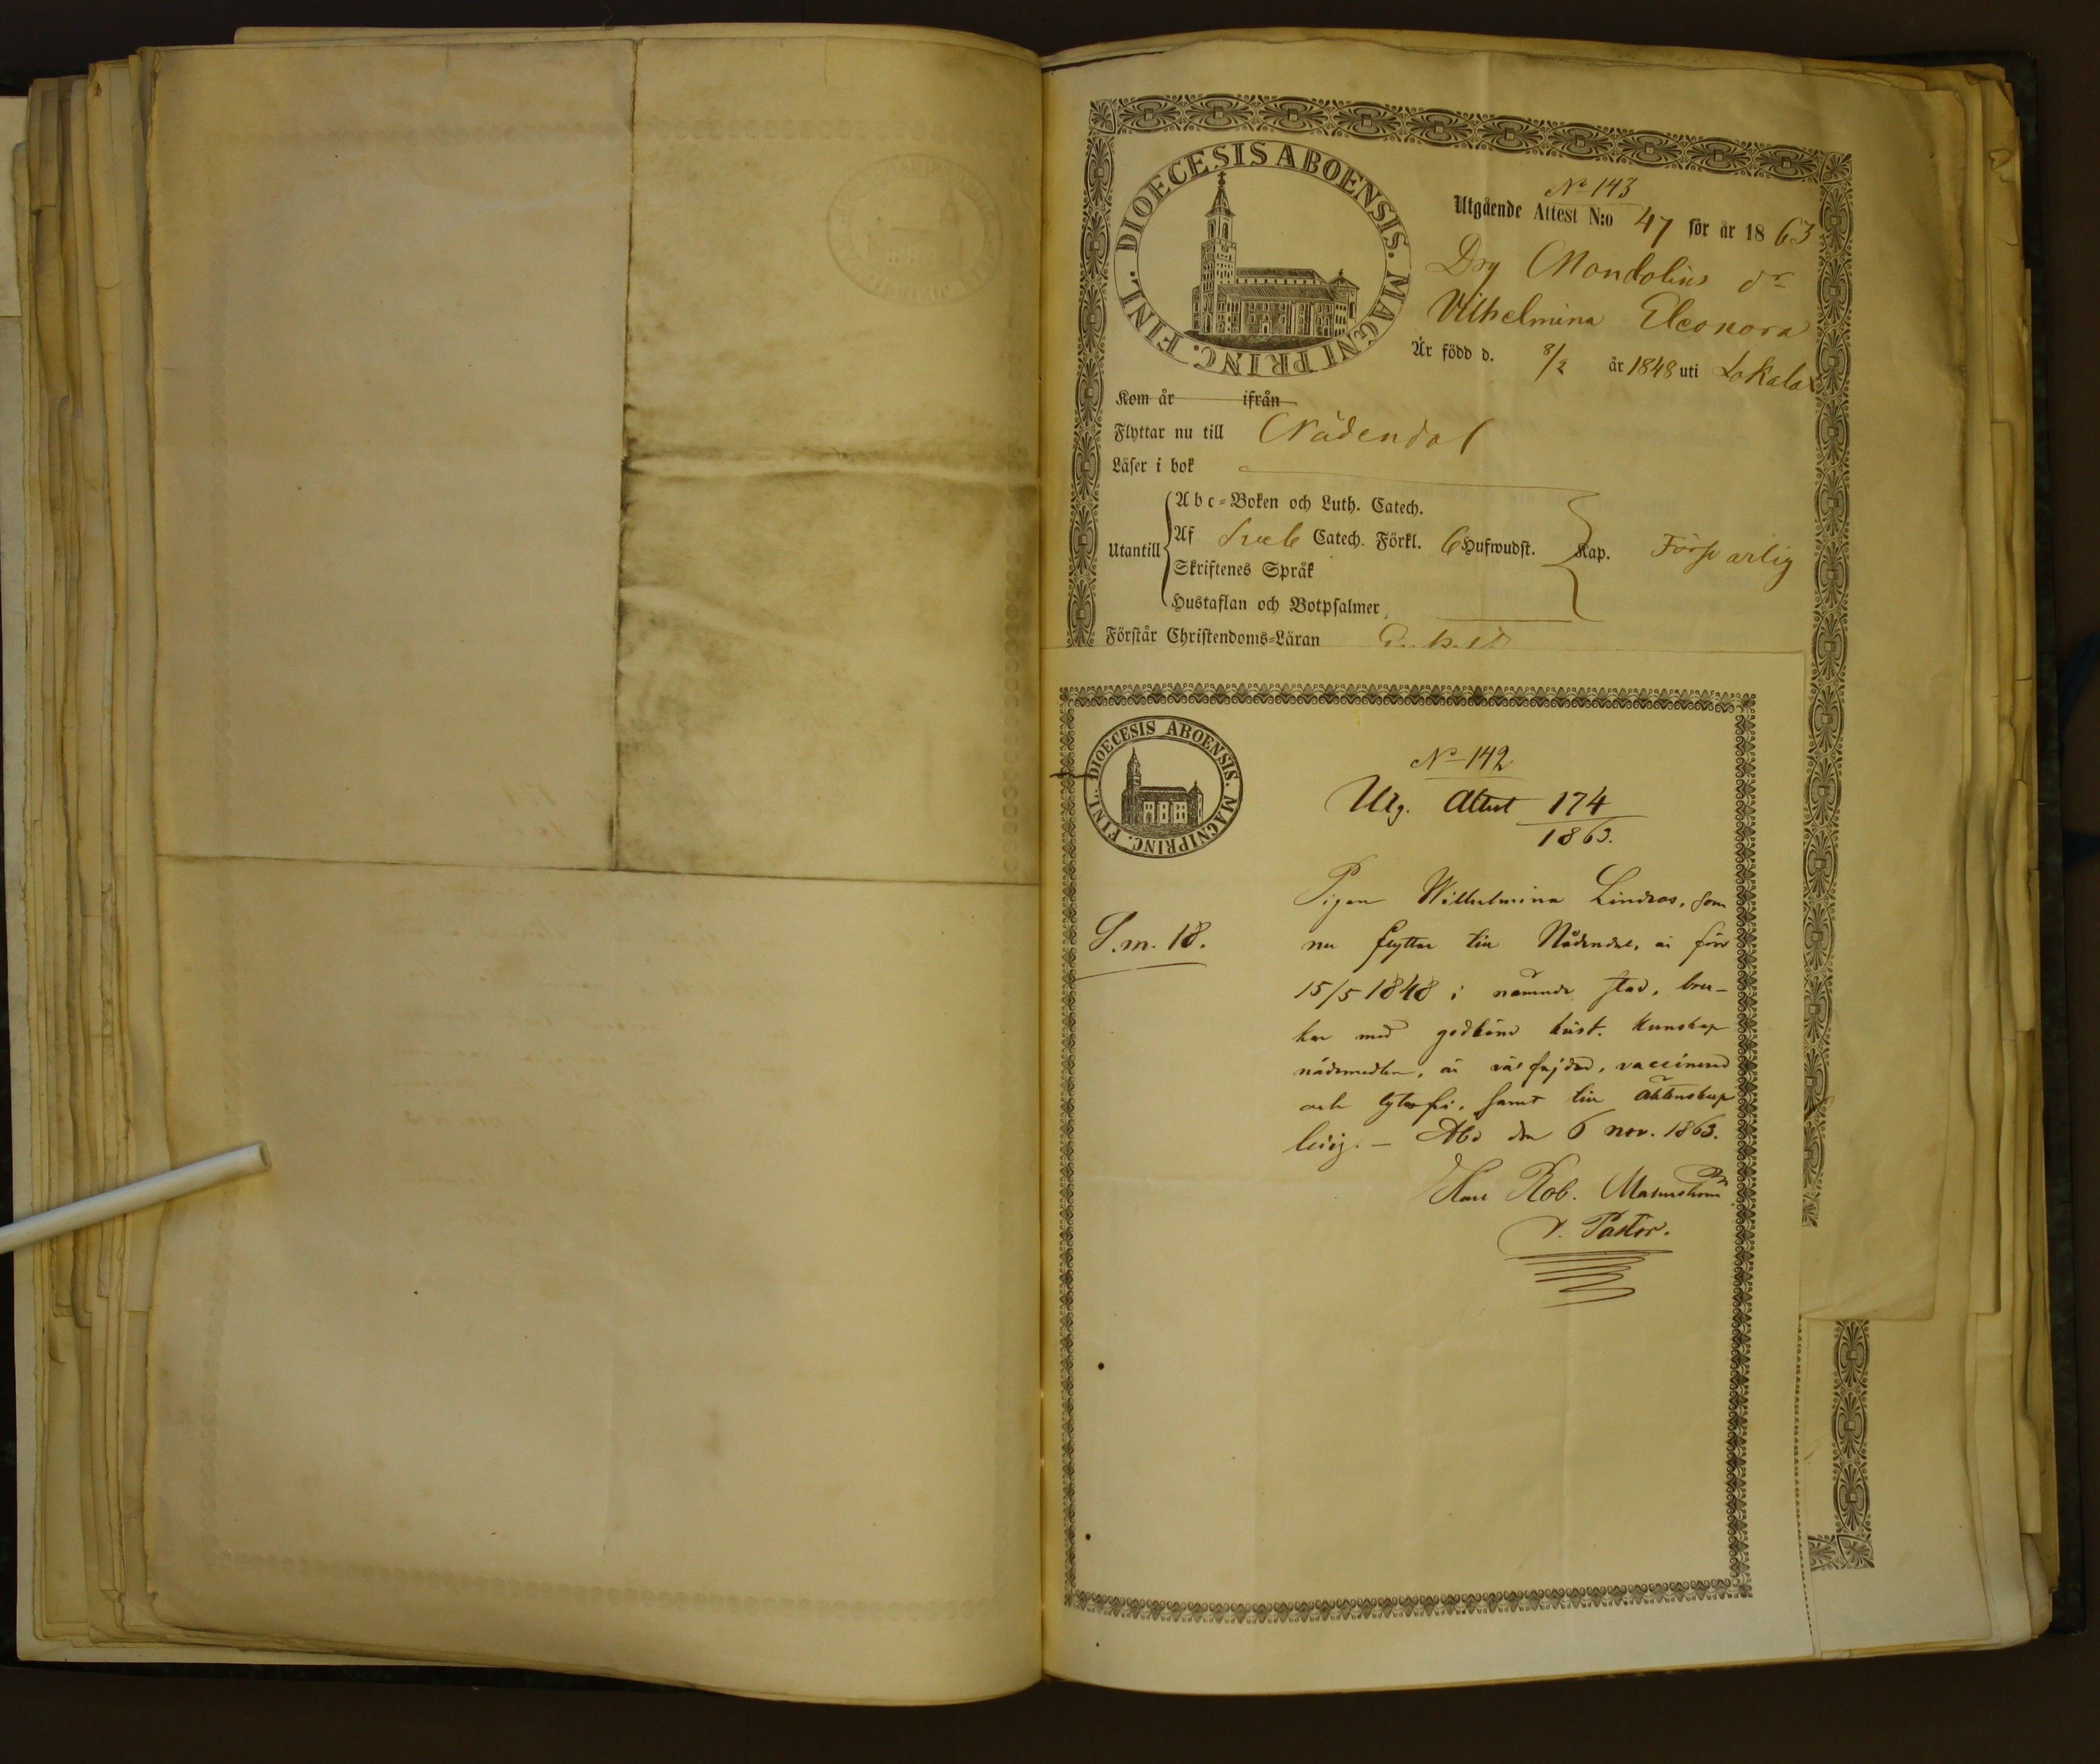 DIOECESIS ABOENSIS. MAGNI PRINC. FINL.
No 143
Utgående Attest N:o 47 för år 1863
Vilhelmina Eleonora
Är född d. 8/2 år 1848 uti Lokalax
Kom år ifrån
Flyttar nu till Nådendal
Läser i bok
Abc-Boken och Luth. Catech.
Utantill Af Sveb Catech. Förkl. 6 Hufwudst. Kap. Försvarlig
Skriftenes Språk
Hustaflan och Botpsalmer
Förstår Christendoms-Läran
DIOECESIS ABOENSIS. MAGNI PRINC. FINL.
No 142
Utg. Attest 174
1863.
Pigan Wilhelmina Lindroos, som
S.m. 18.
nu flyttar till Nådendal, är född
15/5 1848 i nämnde stad, bru-
kar med godkänd krist. kunskap
nådemedlen, är välfrejdad, vaccinerad
och lytesfri, samt till äktenskap
ledig. – Åbo den 6 nov. 1863.
Karl Rob. Malmström
v. Pastor.